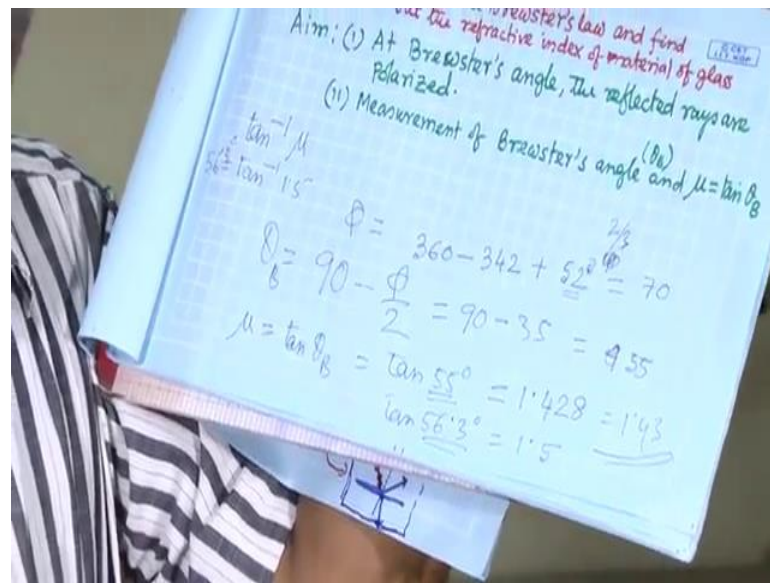 Brewster's law and find
out the refractive index of material of glass
Aim: (i) At Brewster's angle, the reflected rays are
Polarized.
(ii) Measurement of Brewster's angle (θB) and μ = tan θB
tan⁻¹ μ
56.3 = tan⁻¹ 1.5
φ = 360 - 342 + 52° = 70
θB = 90 - φ/2 = 90 - 35 = 55
μ = tan θB = tan 55° = 1.428 = 1.43
tan 56.3° = 1.5